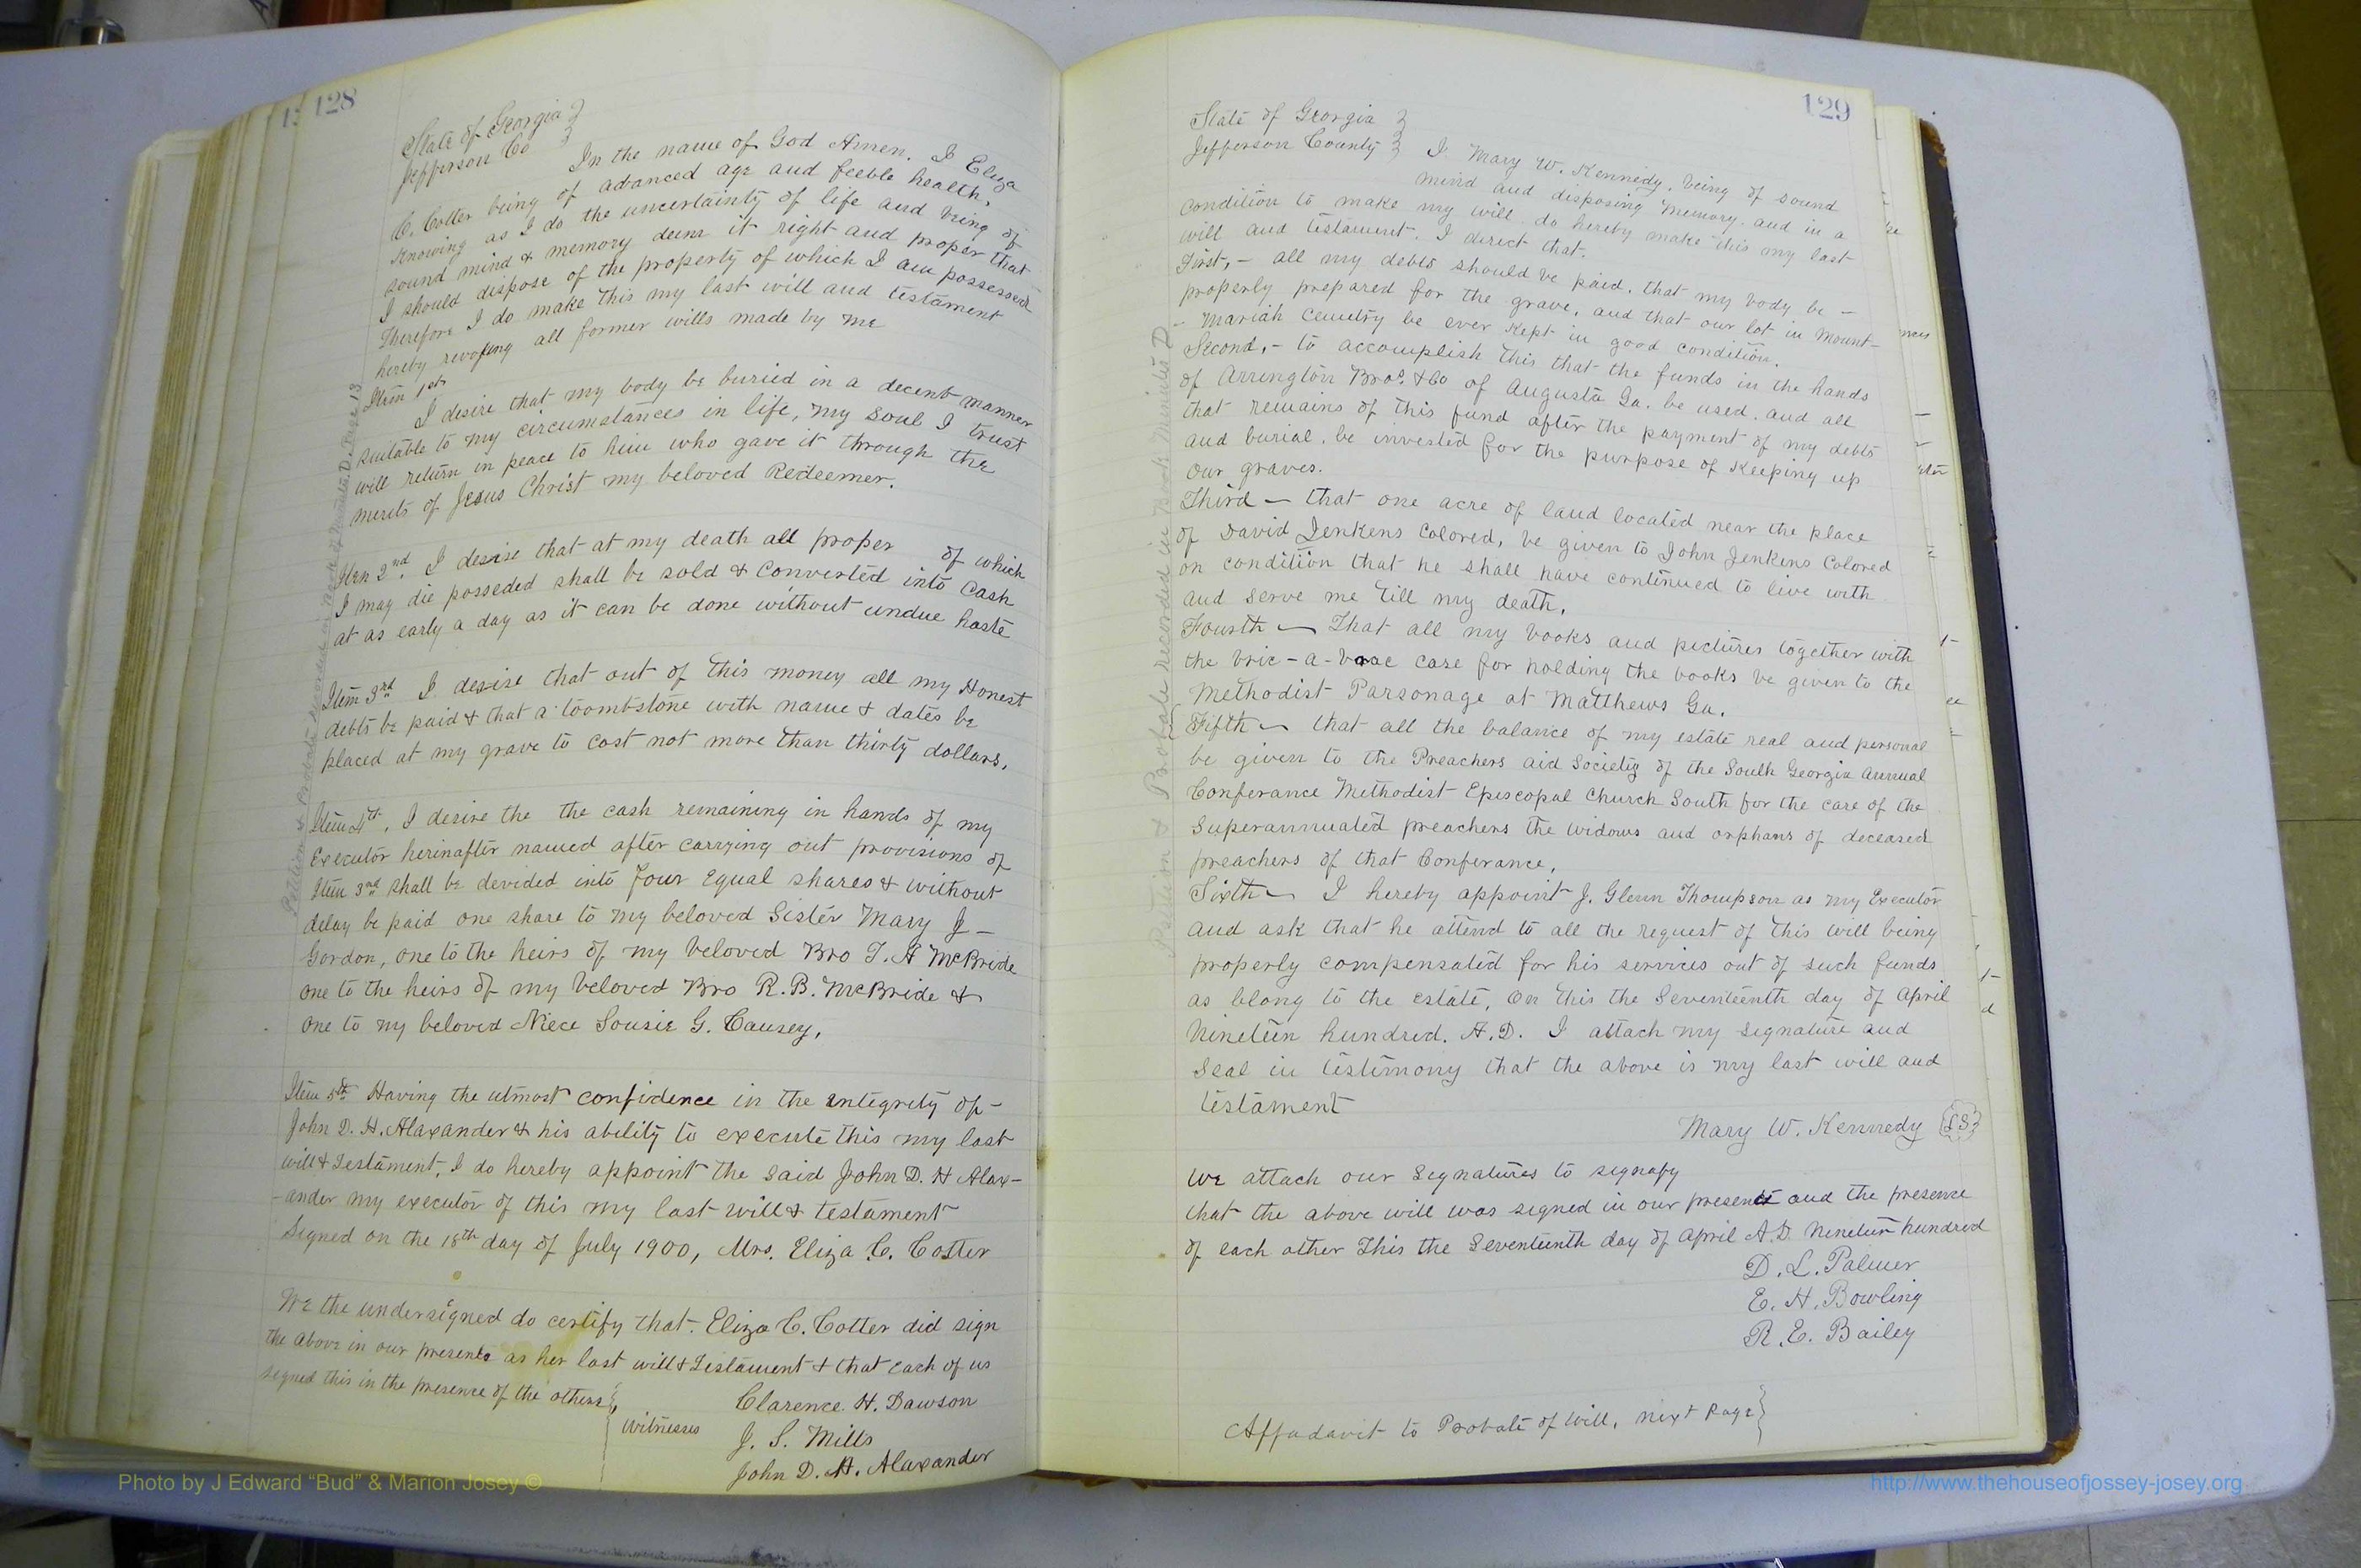 128
State of Georgia }
Jefferson Co }
In the name of God Amen. I Eliza
C. Cotter being of advanced age and feeble health,
Knowing as I do the uncertainty of life and being of
sound mind & memory deem it right and proper that
I should dispose of the property of which I am possessed
Therefore I do make this my last will and testament
hereby revoking all former wills made by me
Item 1st
I desire that my body be buried in a decent manner
suitable to my circumstances in life, my soul I trust
will return in peace to him who gave it through the
merits of Jesus Christ my beloved Redeemer.
Item 2nd. I desire that at my death all proper of which
I may die posseded shall be sold & Converted into Cash
at as early a day as it can be done without undue haste
Item 3rd I desire that out of this money all my Honest
debts be paid & that a toombstone with name & dates be
placed at my grave to cost not more than thirty dollars.
Item 4th, I desire the the cash remaining in hands of my
Executor herinafter named after carrying out provisions of
Item 3rd shall be devided into four Equal shares & without
delay be paid one share to my beloved Sister Mary J –
Gordon, one to the heirs of my beloved Bro T. A McBride
one to the heirs of my beloved Bro R. B. McBride &
one to my beloved Niece Sousie G. Causey,
Item 5th Having the utmost confidence in the integrity of –
John D. H. Alaxander & his ability to execute this my last
will & Testament, I do hereby appoint the said John D. H Alax–
–ander my executor of this my last will & testament
Signed on the 18th day of July 1900, Mrs. Eliza C. Cotter
We the undersigned do certify that Eliza C. Cotter did sign
the above in our presents as her last will & Testament & that each of us
signed this in the presence of the others,
Witnesses
Clarence H. Dawson
J. S. Mills
John D. H. Alaxander
129
State of Georgia }
Jefferson County } I Mary W. Kennedy, being of sound
mind and disposing memory and in a
condition to make my will do hereby make this my last
will and testament. I direct that.
First, – all my debts should be paid, that my body be –
properly prepared for the grave, and that our lot in Mount–
– Mariah Cemetry be ever kept in good condition.
Second, – to accomplish this that the funds in the hands
of Arrington Bros. & Co of Augusta Ga. be used, and all
that remains of this fund after the payment of my debts
and burial, be invested for the purpose of Keeping up
our graves.
Third – that one acre of land located near the place
of David Jenkens Colored, be given to John Jenkens Colored
on condition that he shall have continued to live with
and serve me till my death,
Fourth – That all my books and pictures together with
the bric-a-brac case for holding the books be given to the
Methodist Parsonage at Matthews Ga.
Fifth – that all the balance of my estate real and personal
be given to the Preachers aid Society of the South Georgia Annual
Conferance Methodist Episcopal Church South for the care of the
Superannuated preachers the widows and orphans of deceased
preachers of that Conferance,
Sixth – I hereby appoint J. Glenn Thompson as my Executor
and ask that he attend to all the request of this will being
properly compensated for his services out of such funds
as blong to the estate, On this the Seventeenth day of April
Nineteen hundred. A.D. I attach my signature and
Seal in testimony that the above is my last will and
testament
Mary W. Kennedy LS
We attach our signatures to signafy
that the above will was signed in our presents and the presence
of each other This the Seventeenth day of April A.D. Nineteen hundred
D. L. Palmer
E. H. Bowling
R. E. Bailey
Affadavit to Probate of will, next page }
Photo by J Edward “Bud” & Marion Josey ©
http://www.thehouseofjossey-josey.org